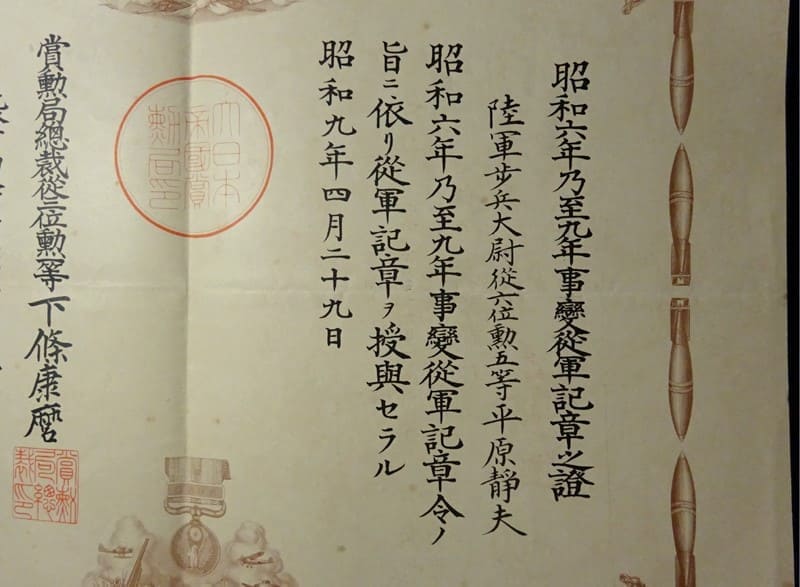 昭和六年乃至九年事變從軍記章之證
陸軍步兵大尉從六位勲五等平原靜夫
昭和六年乃至九年事變從軍記章令ノ
旨ニ依リ從軍記章ヲ授與セラル
昭和九年四月二十九日
大日本
帝國賞
勲局印
賞勲局總裁從三位勲一等下條康麿
賞勲
局總
裁印